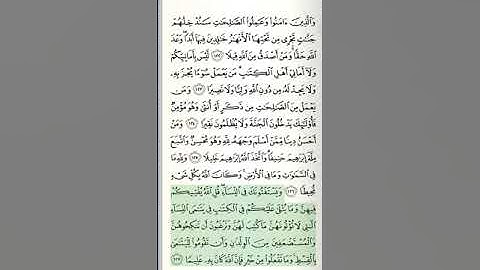 وَالَّذِينَ ءَامَنُوا وَعَمِلُوا الصَّالِحَاتِ سَنُدْخِلُهُمْ
جَنَّاتٍ تَجْرِي مِن تَحْتِهَا الْأَنْهَارُ خَالِدِينَ فِيهَا أَبَدًا وَعْدَ
اللَّهِ حَقًّا وَمَنْ أَصْدَقُ مِنَ اللَّهِ قِيلًا ١٢٢ لَّيْسَ بِأَمَانِيِّكُمْ
وَلَا أَمَانِيِّ أَهْلِ الْكِتَابِ مَن يَعْمَلْ سُوءًا يُجْزَ بِهِ
وَلَا يَجِدْ لَهُ مِن دُونِ اللَّهِ وَلِيًّا وَلَا نَصِيرًا ١٢٣ وَمَن
يَعْمَلْ مِنَ الصَّالِحَاتِ مِن ذَكَرٍ أَوْ أُنثَىٰ وَهُوَ مُؤْمِنٌ
فَأُولَٰئِكَ يَدْخُلُونَ الْجَنَّةَ وَلَا يُظْلَمُونَ نَقِيرًا ١٢٤ وَمَنْ
أَحْسَنُ دِينًا مِّمَّنْ أَسْلَمَ وَجْهَهُ لِلَّهِ وَهُوَ مُحْسِنٌ وَاتَّبَعَ
مِلَّةَ إِبْرَاهِيمَ حَنِيفًا وَاتَّخَذَ اللَّهُ إِبْرَاهِيمَ خَلِيلًا ١٢٥ وَلِلَّهِ مَا
فِي السَّمَاوَاتِ وَمَا فِي الْأَرْضِ وَكَانَ اللَّهُ بِكُلِّ شَيْءٍ
مُّحِيطًا ١٢٦ وَيَسْتَفْتُونَكَ فِي النِّسَاءِ قُلِ اللَّهُ يُفْتِيكُمْ
فِيهِنَّ وَمَا يُتْلَىٰ عَلَيْكُمْ فِي الْكِتَابِ فِي يَتَامَى النِّسَاءِ
الَّٰتِي لَا تُؤْتُونَهُنَّ مَا كُتِبَ لَهُنَّ وَتَرْغَبُونَ أَن تَنكِحُوهُنَّ
وَالْمُسْتَضْعَفِينَ مِنَ الْوِلْدَانِ وَأَن تَقُومُوا لِلْيَتَامَىٰ
بِالْقِسْطِ وَمَا تَفْعَلُوا مِنْ خَيْرٍ فَإِنَّ اللَّهَ كَانَ بِهِ عَلِيمًا ١٢٧